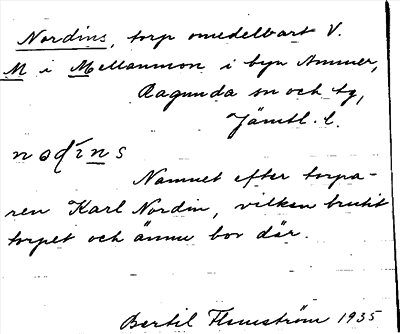 Nordins, torp omedelbart V.
M i Mellanmon i byn Ammer,
Ragunda sn och tg,
Jämtl. l.
nodíns
Namnet efter torpa-
ren Karl Nordin, vilken brutit
torpet och ännu bor där.
Bertil Flemström 1935